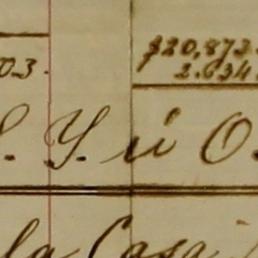 $20,873.
03.
2.634
S. Y. ú O.
la Casa